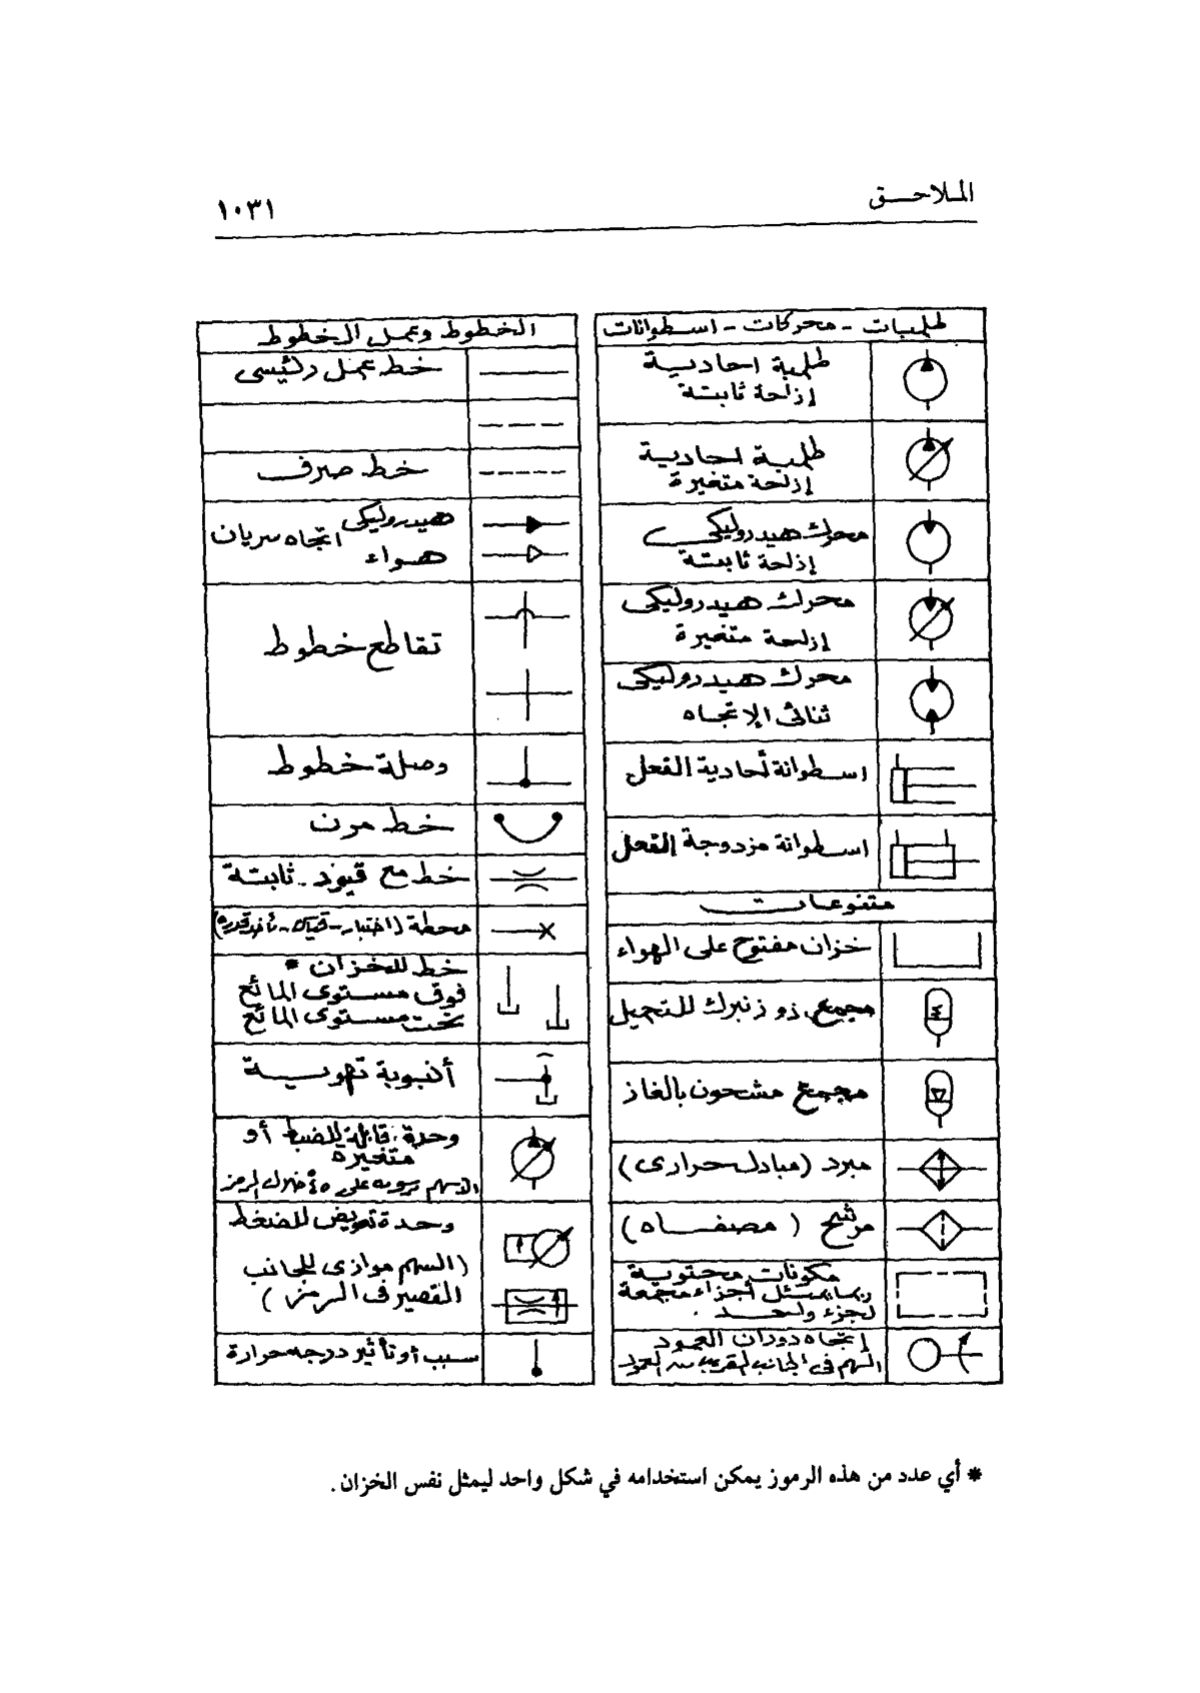 الملاحـــق
١٠٣١
طلمبات - محركات - اسطوانات
طلمبة احادية
إزاحة ثابتة
طلمبة احادية
إزاحة متغيرة
محرك هيدروليكى
إزاحة ثابتة
محرك هيدروليكى
إزاحة متغيرة
محرك هيدروليكى
ثنائى الإتجاه
اسطوانة أحادية الفعل
اسطوانة مزدوجة الفعل
متنوعات
خزان مفتوح على الهواء
مجمع ذو زنبرك للتحميل
مجمع مشحون بالغاز
مبرد (مبادل حرارى)
مرشح (مصفاه)
مكونات محتوية
ربما يمثل أجزاء مجمعة
لجزء واحد .
إتجاه دوران العمود
السهم فى الجانب القريب من العمود
الخطوط وعمل الخطوط
خط عمل رئيسى
خط صرف
هيدروليكى اتجاه سريان
هواء
تقاطع خطوط
وصلة خطوط
خط مرن
خط مع قيود - ثابتة
محطة (اختبار - قياس - تأخذ قدره)
خط للخزان *
فوق مستوى المائع
تحت مستوى المائع
أنبوبة تهوية
وحدة قابلة للضبط أو
متغيره
السهم على ٤٥° خلال الرمز
وحدة تعويض للضغط
(السهم موازى للجانب
القصير فى الرمز)
سبب أو تأثير درجه حرارة
* أي عدد من هذه الرموز يمكن استخدامه في شكل واحد ليمثل نفس الخزان .